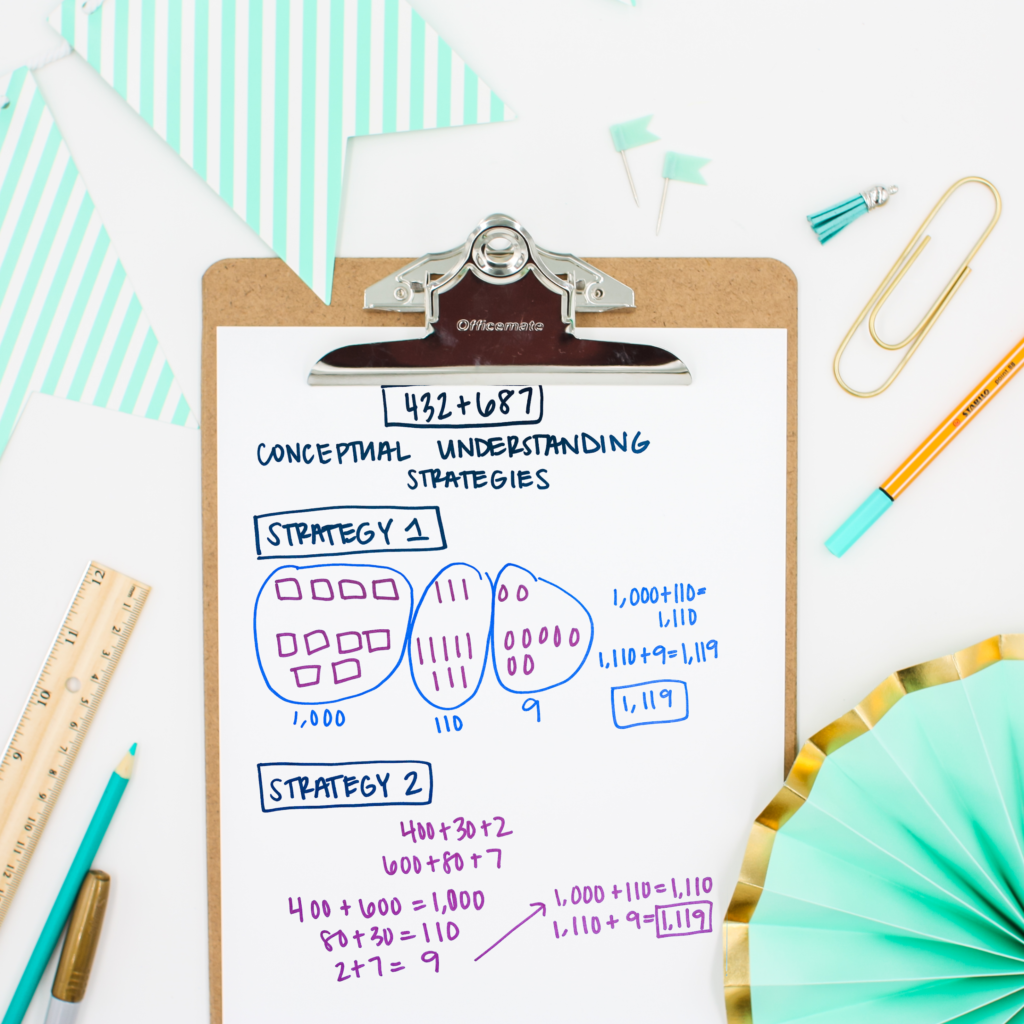 Officemate
432+687
CONCEPTUAL UNDERSTANDING
STRATEGIES
STRATEGY 1
1,000+110=
1,110
1,110+9=1,119
1,119
1,000
110
9
STRATEGY 2
400+30+2
600+80+7
400+600=1,000
80+30=110
2+7=9
1,000+110=1,110
1,110+9=1,119
STABILO
12
11
10
9